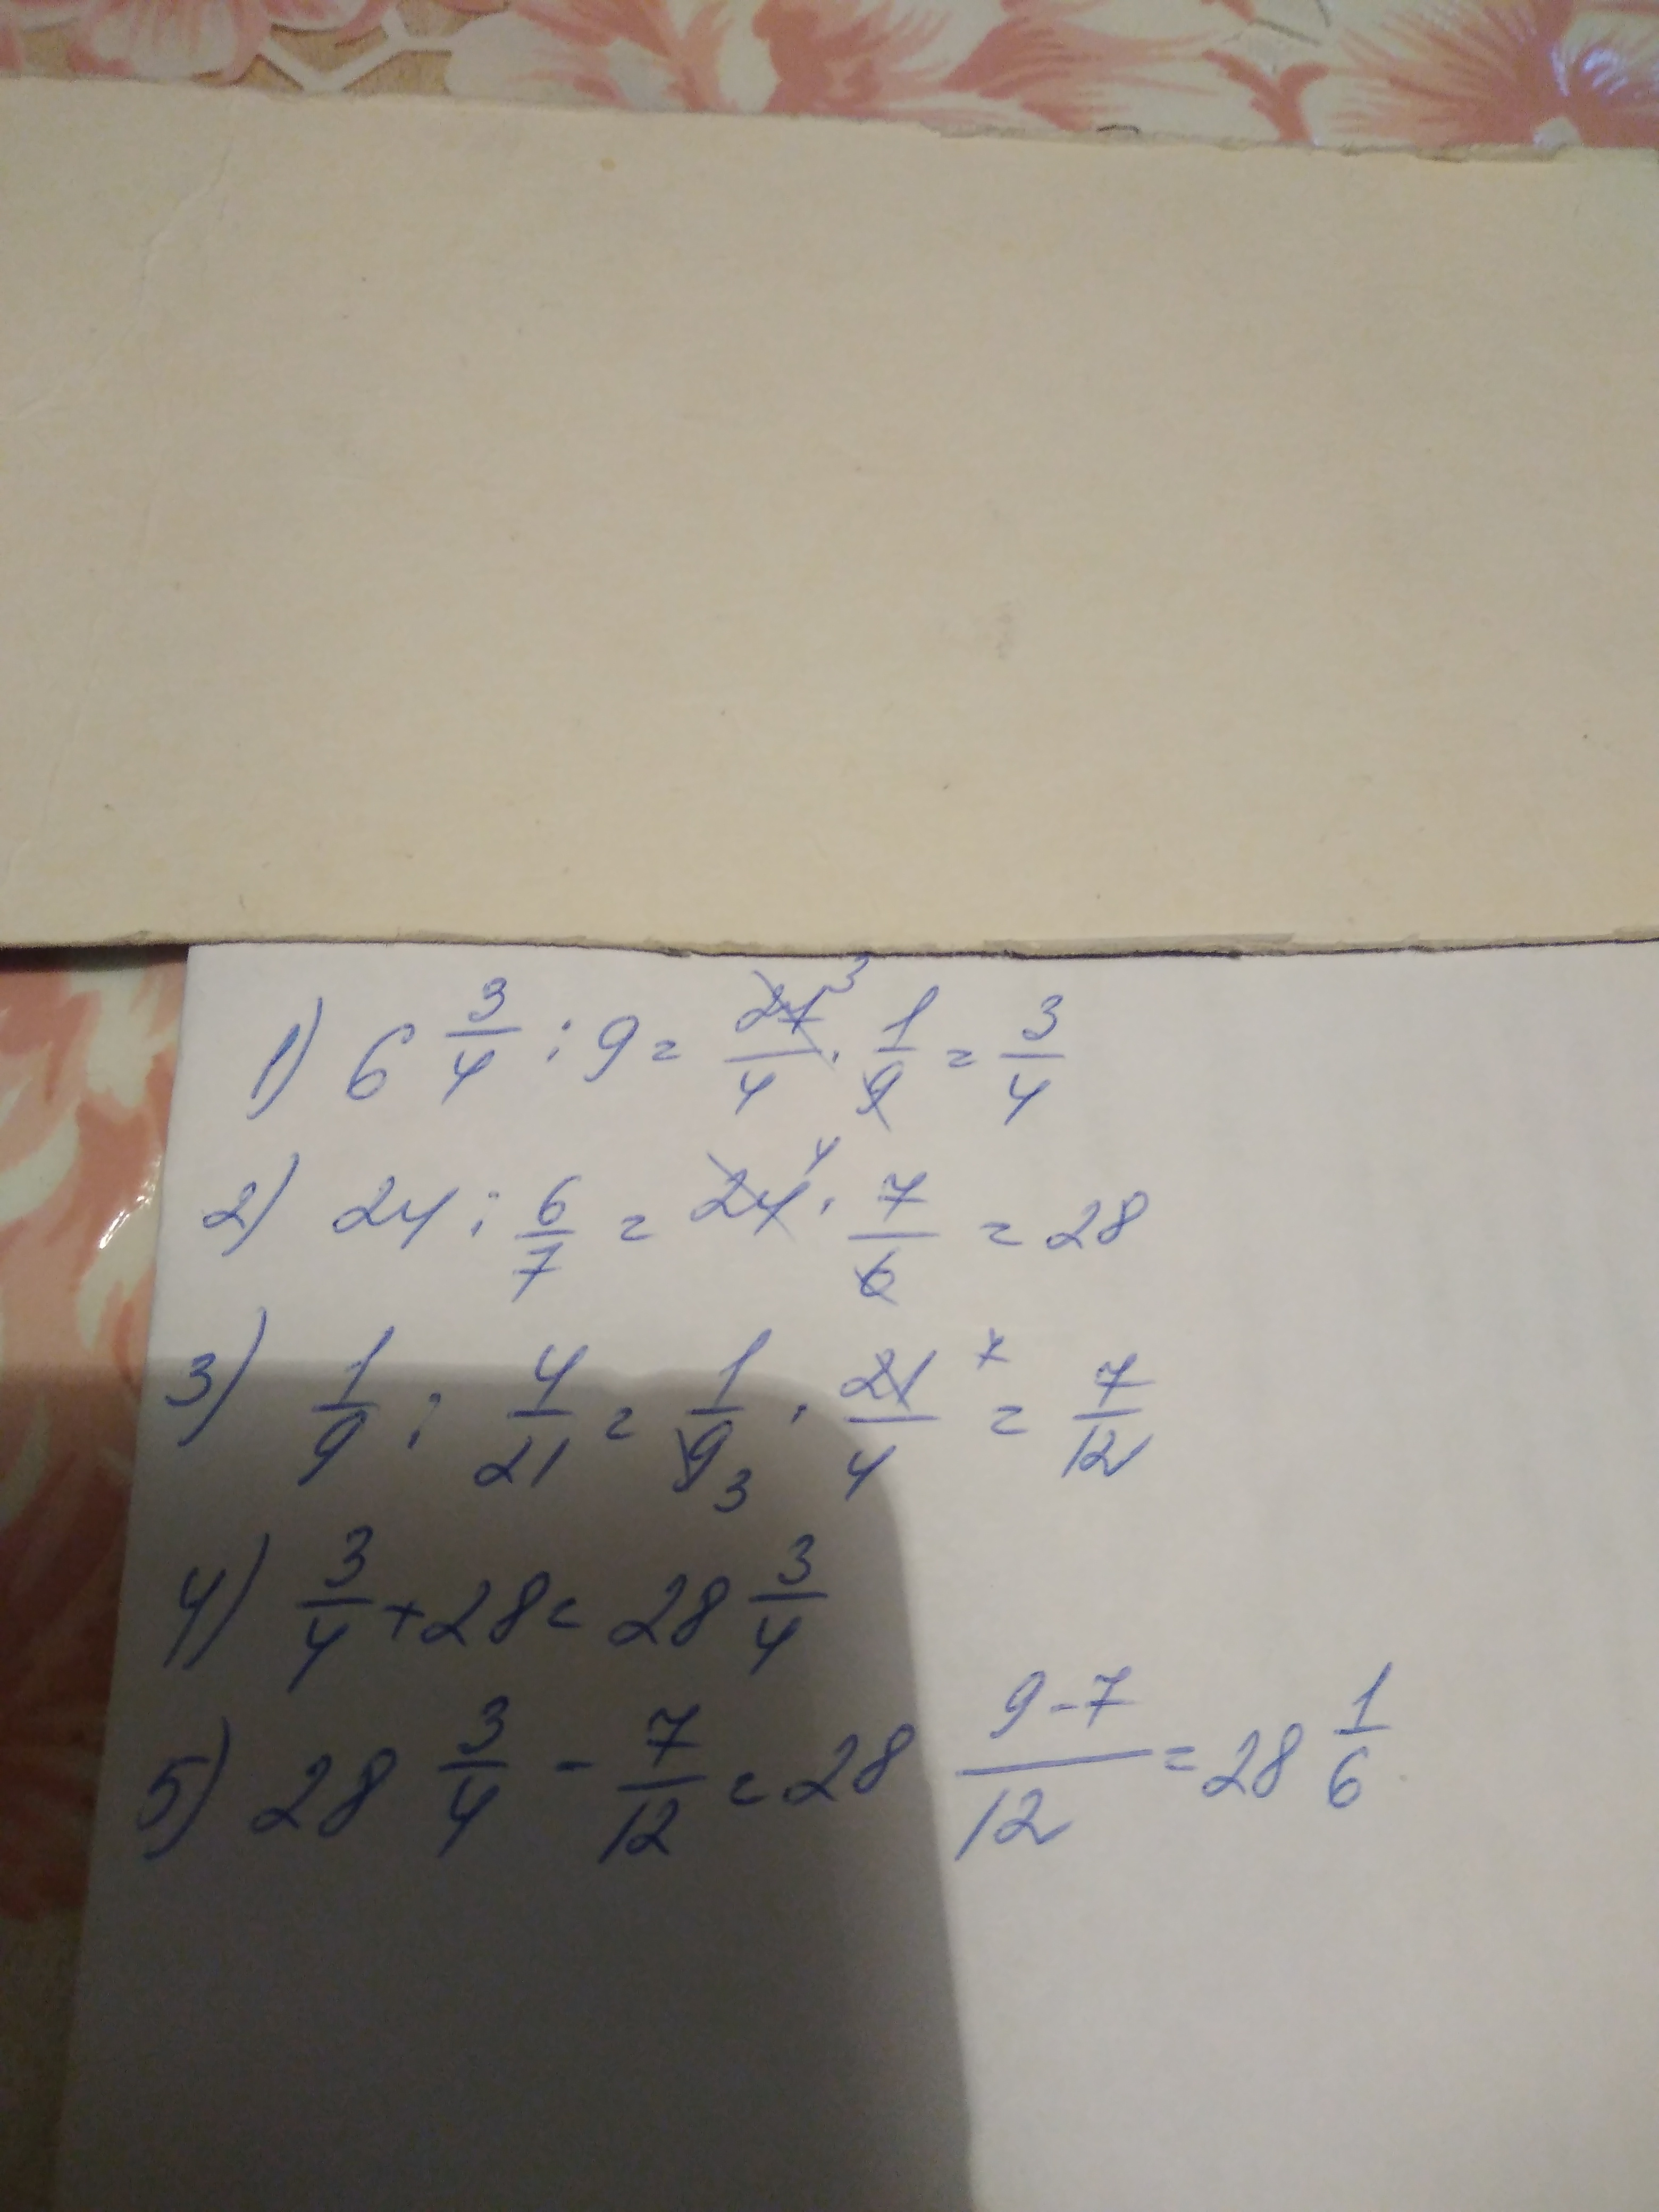 1) 6 3/4 : 9 = 27/4 3 · 1/9 = 3/4
2) 24 : 6/7 = 24 4 · 7/6 = 28
3) 1/9 : 4/21 = 1/9 3 · 21/4 7 = 7/12
4) 3/4 + 28 = 28 3/4
5) 28 3/4 - 7/12 = 28 9-7/12 = 28 1/6